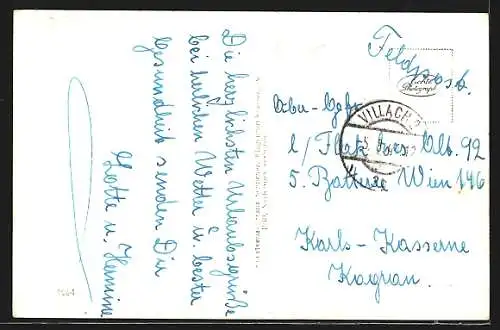 Die herzlichsten Urlaubsgrüße
bei herlichen Wetter u. bester
Gesundheit senden Dir
Lotte u. Hermine
Feldpost.
Echte
Photographie
VILLACH 2
Ober-Gefr.
l/Flak Abt. 92
5. Batterie Wien 146
Karls-Kasserne
Kagran.